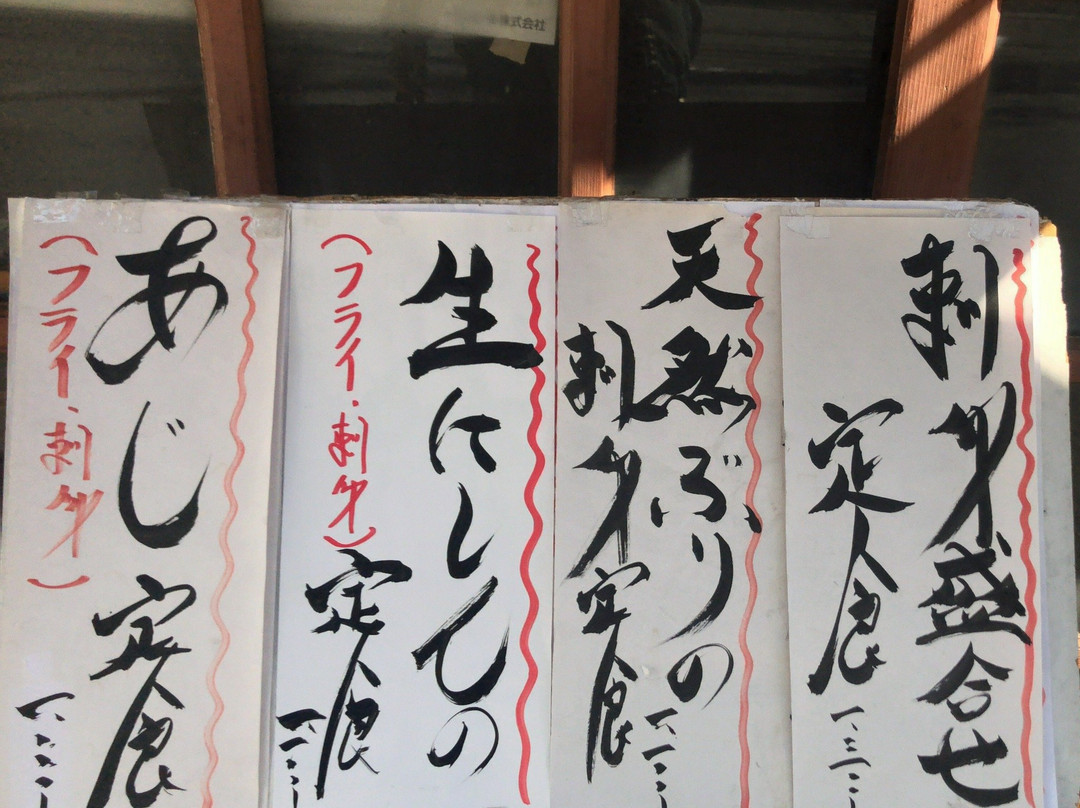 刺身盛合せ
定食
天然ぶりの
刺身定食
生にしんの
(フライ・刺身)定食
あじ定食
(フライ・刺身)